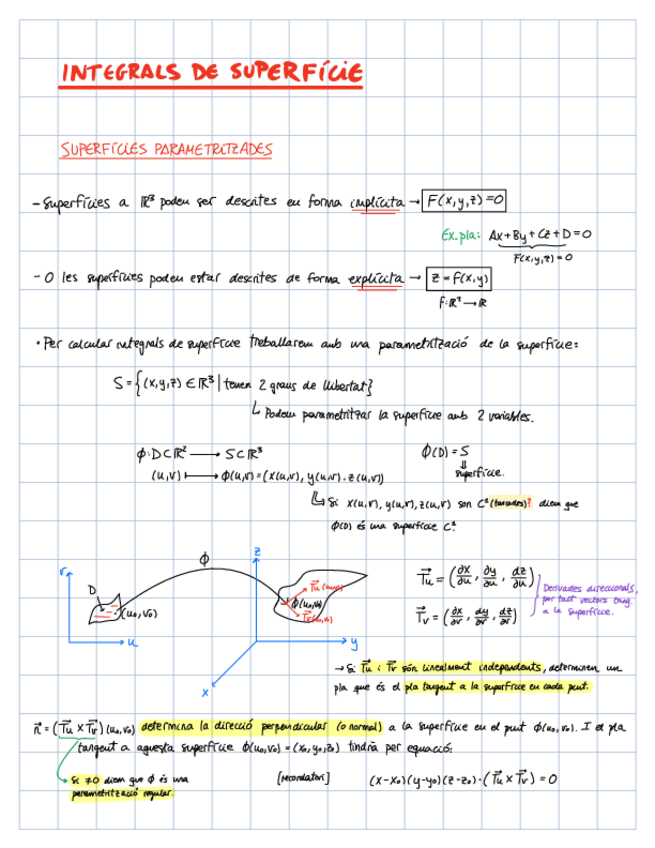 INTEGRALS DE SUPERFÍCIE
SUPERFÍCIES PARAMETRITZADES
- Superfícies a ℝ³ poden ser descrites en forma implícita → F(x,y,z)=0
Ex. pla: Ax+By+Cz+D=0
F(x,y,z)=0
- O les superfícies poden estar descrites de forma explícita → z=f(x,y)
f:ℝ²→ℝ
• Per calcular integrals de superfície treballarem amb una parametrització de la superfície:
S={(x,y,z)∈ℝ³ | tenen 2 graus de llibertat}
↳ Podem parametritzar la superfície amb 2 variables.
ϕ:D⊂ℝ² → S⊂ℝ³
ϕ(D)=S
⇓
(u,v) ↦ ϕ(u,v)=(x(u,v), y(u,v), z(u,v))
superfície.
↳ Si x(u,v), y(u,v), z(u,v) són C¹ diem que
ϕ(D) és una superfície C¹.
v
D
(u₀,v₀)
u
ϕ
z
T⃗u(u₀,v₀)
ϕ(u₀,v₀)
T⃗v(u₀,v₀)
y
x
T⃗u = (∂x/∂u, ∂y/∂u, ∂z/∂u)
T⃗v = (∂x/∂v, ∂y/∂v, ∂z/∂v)
Derivades direccionals,
per tant vectors tang.
a la superfície.
→ Si T⃗u i T⃗v són linealment independents, determinen un
pla que és el pla tangent a la superfície en cada punt.
n⃗ = (T⃗u × T⃗v)(u₀,v₀) determina la direcció perpendicular (o normal) a la superfície en el punt ϕ(u₀,v₀). I el pla
tangent a aquesta superfície ϕ(u₀,v₀)=(x₀,y₀,z₀) tindrà per equació:
Si ≠0 diem que ϕ és una
parametrització regular.
[recordatori]
(x-x₀)(y-y₀)(z-z₀)·(T⃗u × T⃗v)=0